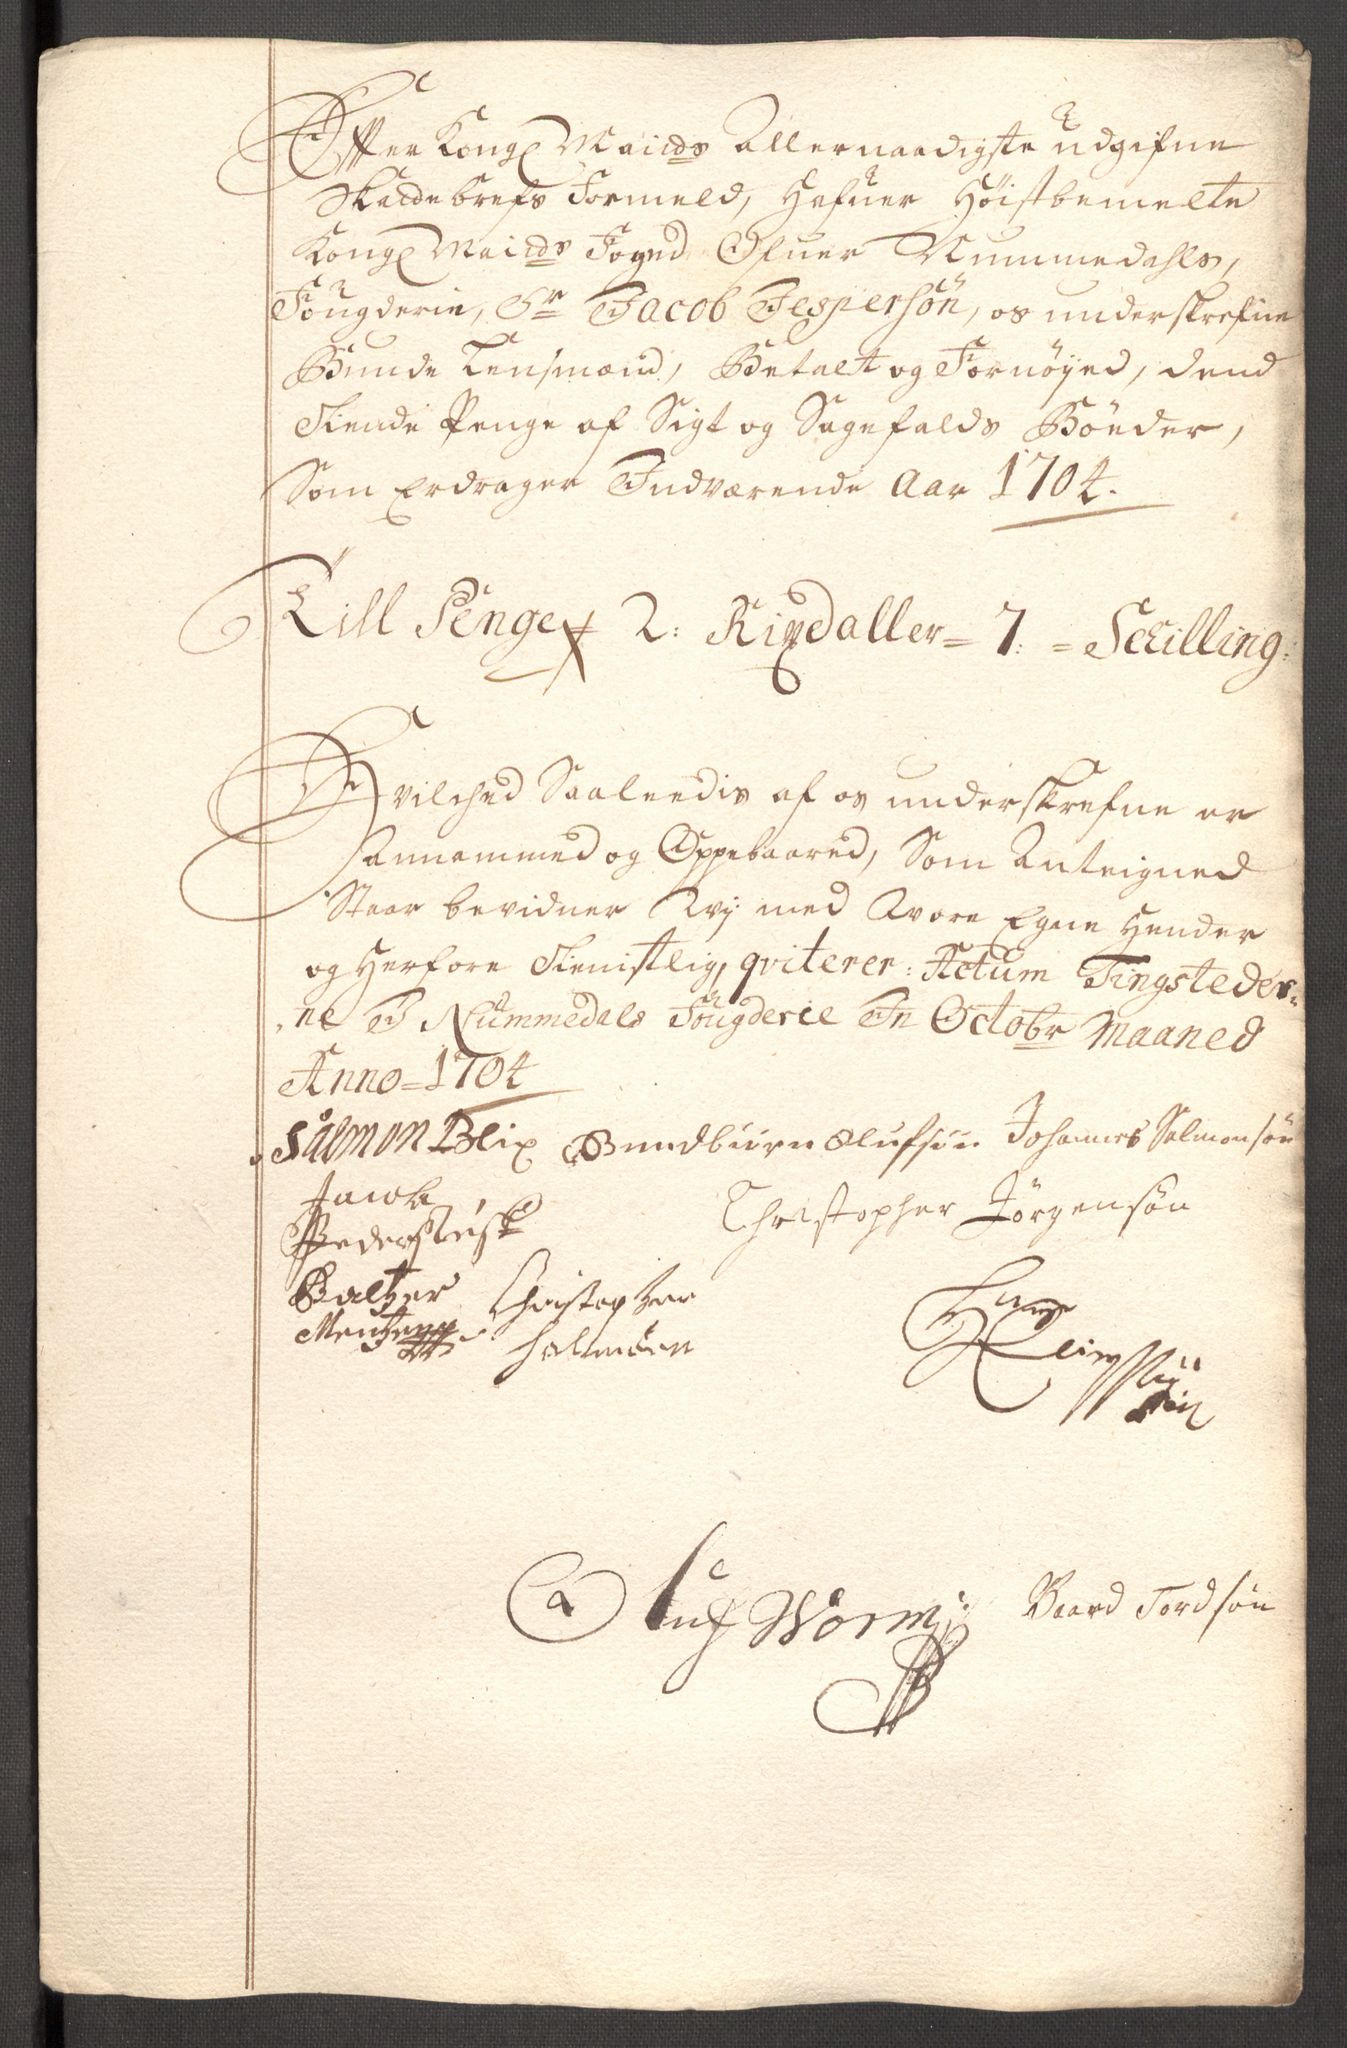 Efter Kongl Maitds Allernaadigste udgifne
Skattebrefs Formeld, Hafuer Höistbemelte
Kongl Maitds Foged Ofuer Nummedahls,
Fougderie, Sr Jacob Jespersön, os underskrefne
Bunde Lensmænd, Betalt og Fornöyed, dend
Tiende Penge af Sigt og Sagefalds Böeder,
Som Erdrager Indværende Aar 1704.
Till Penge 2: Rixdaller = 7: = Schilling:
Hvilched Saaleedis af os underskrefne er
annammed og Oppebaared, Som Anteigned
Staar bevidner Wij med Wore Egne Hender
og Herfore Tienistlig, qviterer: Actum Tingsteder=
ne I Nummedals Fougderie In Octobr Maaned
Anno = 1704
Salmon Blix Gundbiørn Olufsön Johannes Salmonsön
Jacob Christopher Jörgensön
Pedersen
Baltzer Christopher